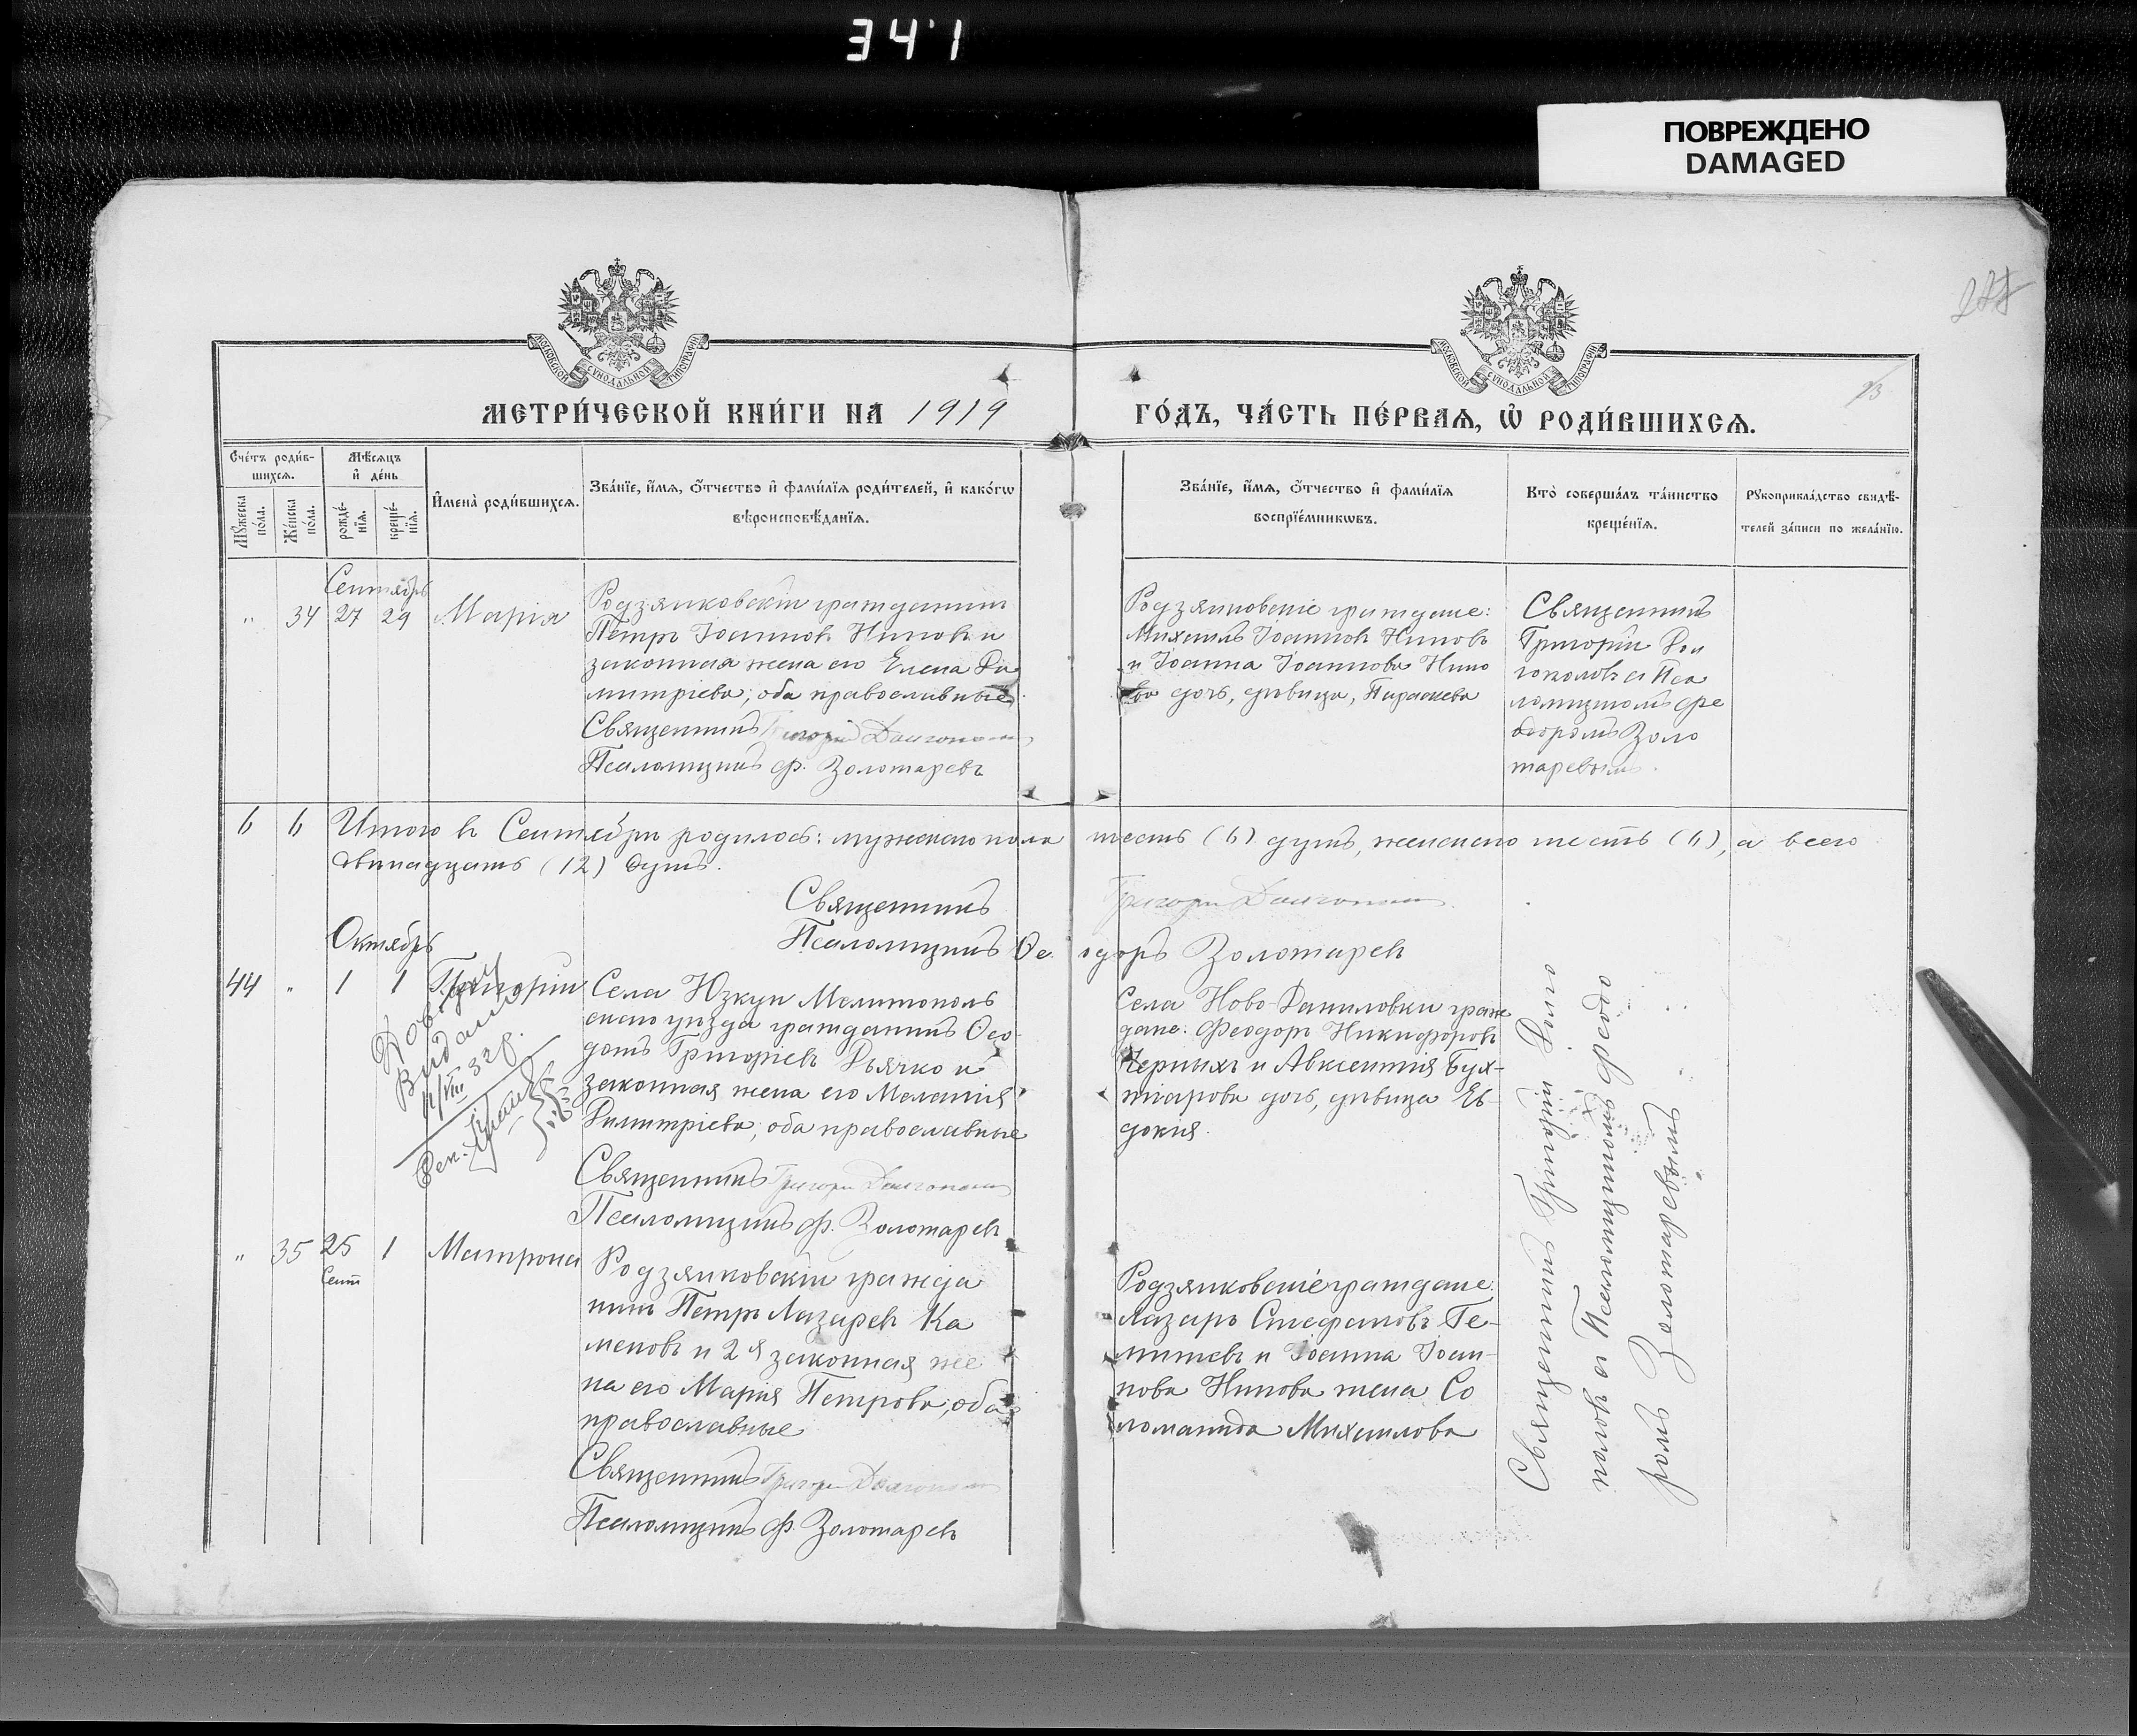 341
ПОВРЕЖДЕНО
DAMAGED
МОСКОВСКОЙ СѴНОДАЛЬНОЙ ТИПОГРАФІИ
МОСКОВСКОЙ СѴНОДАЛЬНОЙ ТИПОГРАФІИ
13
МЕТРИ́ЧЕСКОЙ КНИ́ГИ НА 1919
ГО́ДЪ, ЧА́СТЬ ПЕ́РВАѦ, Ѽ РОДИ́ВШИХСѦ.
Сче́тъ роди́в-
шихсѧ.
Мꙋ́жеска по́ла.
Же́нска по́ла.
Мѣ́сѧцъ
и҆ де́нь
рожде́-
нїѧ.
креще́-
нїѧ.
И҆мена̀ роди́вшихсѧ.
Зва́нїе, и҆́мѧ, ѻ҆́тчество и҆ фами́лїѧ роди́телей, и҆ како́гѡ
вѣроисповѣ́данїѧ.
Зва́нїе, и҆́мѧ, ѻ҆́тчество и҆ фами́лїѧ
воспрїе́мникѡвъ.
Кто̀ соверша́лъ та́инство
креще́нїѧ.
Рꙋкоприкла́дство свидѣ́-
телей за́писи по жела́нїю.
Сентябрь
" 34 27 29 Марія
Родзянковскій гражданинъ
Петръ Іоанновъ Ниновъ и
законная жена его Елена Ди
митріева, оба православные.
Священникъ Григорій Долгополовъ
Псаломщикъ Ф. Золотаревъ
Родзянковскіе граждане:
Михаилъ Іоанновъ Ниновъ
и Іоанна Іоаннова Нино
ва дочь, дѣвица, Параскева
Священникъ
Григорій Дол
гополовъ съ Пса
ломщикомъ Фе
одоромъ Золо
таревымъ.
6 6 Итого въ Сентябрѣ родилось: мужескаго пола шесть (6) душъ, женскаго шесть (6), а всего
двѣнадцать (12) душъ.
Священникъ Григорій Долгополовъ
Псаломщикъ Ѳеодоръ Золотаревъ
Октябрь
44 " 1 1 Григорій
Довідку
Видано
VIII 32 р.
Села Юзкуи Мелитополь
скаго уѣзда гражданинъ Ѳео
дотъ Григоріевъ Дьячко и
законная жена его Меланія
Димитріева, оба православные
Священникъ Григорій Долгополовъ
Псаломщикъ Ф. Золотаревъ
Села Ново-Даниловки граж
дане: Феодоръ Никифоровъ
Черныхъ и Авксентія Бух-
тіарова дочь, дѣвица Ев-
докія.
" 35 25 1 Матрона
Сент
Родзянковскій гражда
нинъ Петръ Лазаревъ Ка
меновъ и 2я законная же
на его Марія Петрова, оба
православные
Священникъ Григорій Долгополовъ
Псаломщикъ Ф. Золотаревъ
Родзянковскіе граждане:
Лазарь Стефановъ Ге-
и Іоанна Іоан-
нова Нинова жена Со
ломанида Михаилова
Священникъ Григорій Долго
половъ съ Псаломщикомъ Феодо
ромъ Золотаревымъ